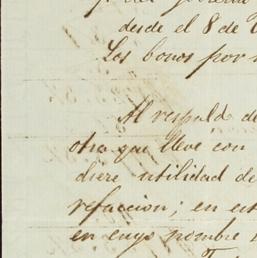 desde el 8 de
Los bonos por
Al respaldo de
otra que lleve con
diere utilidad de
refaccion; en est
en cuyo nombre